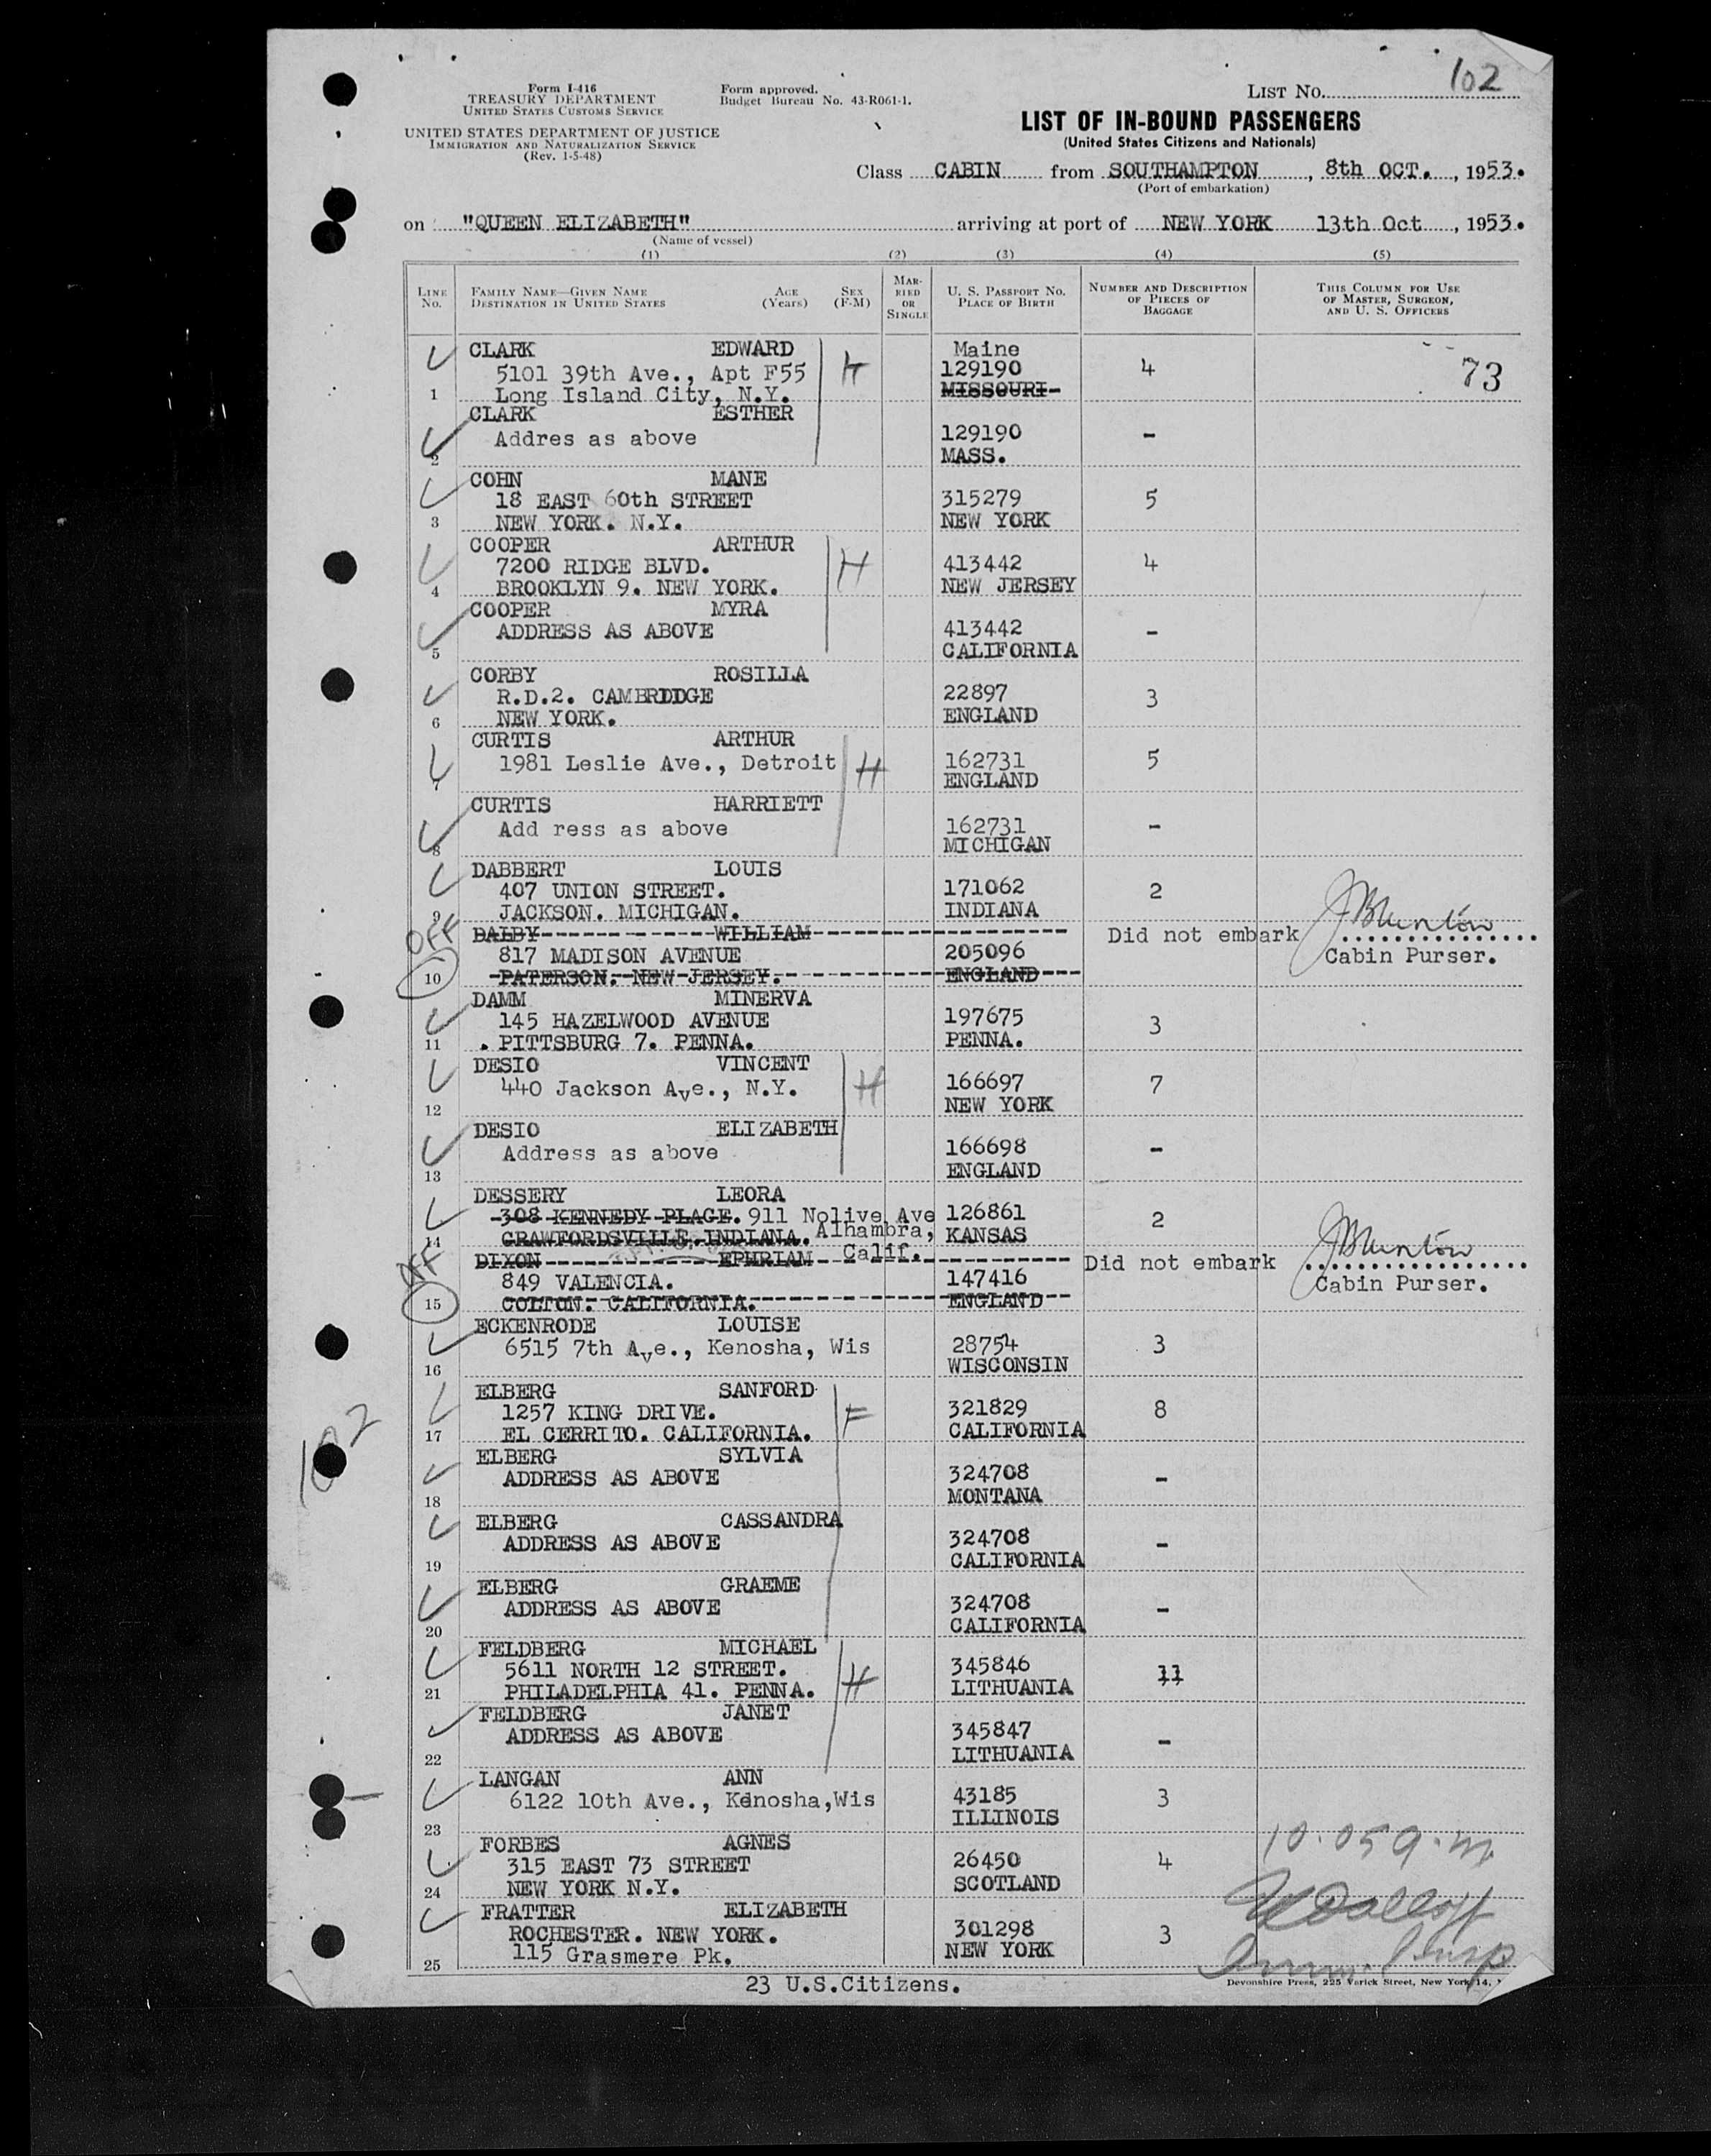 102
Form I-416
TREASURY DEPARTMENT
UNITED STATES CUSTOMS SERVICE
UNITED STATES DEPARTMENT OF JUSTICE
IMMIGRATION AND NATURALIZATION SERVICE
(Rev. 1-5-48)
Form approved.
Budget Bureau No. 43-R061-1.
LIST No.
LIST OF IN-BOUND PASSENGERS
(United States Citizens and Nationals)
Class CABIN from SOUTHAMPTON, 8th OCT., 1953.
(Port of embarkation)
on "QUEEN ELIZABETH" arriving at port of NEW YORK 13th Oct, 1953.
(Name of vessel)
(1) (2) (3) (4) (5)
LINE No. FAMILY NAME—GIVEN NAME DESTINATION IN UNITED STATES AGE (Years) SEX (F-M) MARRIED OR SINGLE U. S. PASSPORT No. PLACE OF BIRTH NUMBER AND DESCRIPTION OF PIECES OF BAGGAGE THIS COLUMN FOR USE OF MASTER, SURGEON, AND U. S. OFFICERS
CLARK EDWARD Maine
5101 39th Ave., Apt F55 H 129190 4 73
1 Long Island City, N.Y. MISSOURI
CLARK ESTHER
Addres as above 129190 -
2 MASS.
COHN MANE
18 EAST 60th STREET 315279 5
3 NEW YORK. N.Y. NEW YORK
COOPER ARTHUR
7200 RIDGE BLVD. H 413442 4
4 BROOKLYN 9. NEW YORK. NEW JERSEY
COOPER MYRA
ADDRESS AS ABOVE 413442 -
5 CALIFORNIA
CORBY ROSILLA
R.D.2. CAMBRDDGE 22897 3
6 NEW YORK. ENGLAND
CURTIS ARTHUR
1981 Leslie Ave., Detroit H 162731 5
7 ENGLAND
CURTIS HARRIETT
Add ress as above 162731 -
8 MICHIGAN
DABBERT LOUIS
407 UNION STREET. 171062 2
9 JACKSON. MICHIGAN. INDIANA
OFF DALBY WILLIAM Did not embark JBlunton
817 MADISON AVENUE 205096 Cabin Purser.
10 PATERSON. NEW JERSEY. ENGLAND
DAMM MINERVA
145 HAZELWOOD AVENUE 197675 3
11 . PITTSBURG 7. PENNA. PENNA.
DESIO VINCENT
440 Jackson Ave., N.Y. H 166697 7
12 NEW YORK
DESIO ELIZABETH
Address as above 166698 -
13 ENGLAND
DESSERY LEORA
308 KENNEDY PLACE. 911 Nolive Ave 126861 2
14 CRAWFORDSVILLE. INDIANA. Alhambra, KANSAS
Calif.
OFF DIXON EPHRIAM Did not embark JBlunton
849 VALENCIA. 147416 Cabin Purser.
15 COLTON. CALIFORNIA. ENGLAND
ECKENRODE LOUISE
6515 7th Ave., Kenosha, Wis 28754 3
16 WISCONSIN
ELBERG SANFORD
1257 KING DRIVE. F 321829 8
17 EL CERRITO. CALIFORNIA. CALIFORNIA
102
ELBERG SYLVIA
ADDRESS AS ABOVE 324708 -
18 MONTANA
ELBERG CASSANDRA
ADDRESS AS ABOVE 324708 -
19 CALIFORNIA
ELBERG GRAEME
ADDRESS AS ABOVE 324708 -
20 CALIFORNIA
FELDBERG MICHAEL
5611 NORTH 12 STREET. H 345846 11
21 PHILADELPHIA 41. PENNA. LITHUANIA
FELDBERG JANET
ADDRESS AS ABOVE 345847 -
22 LITHUANIA
LANGAN ANN
6122 10th Ave., Kenosha,Wis 43185 3
23 ILLINOIS
FORBES AGNES 10.05 a.m
315 EAST 73 STREET 26450 4
24 NEW YORK N.Y. SCOTLAND
FRATTER ELIZABETH
ROCHESTER. NEW YORK. 301298 3
25 115 Grasmere Pk. NEW YORK Imm. Insp
23 U.S.Citizens.
Devonshire Press, 225 Varick Street, New York 14,